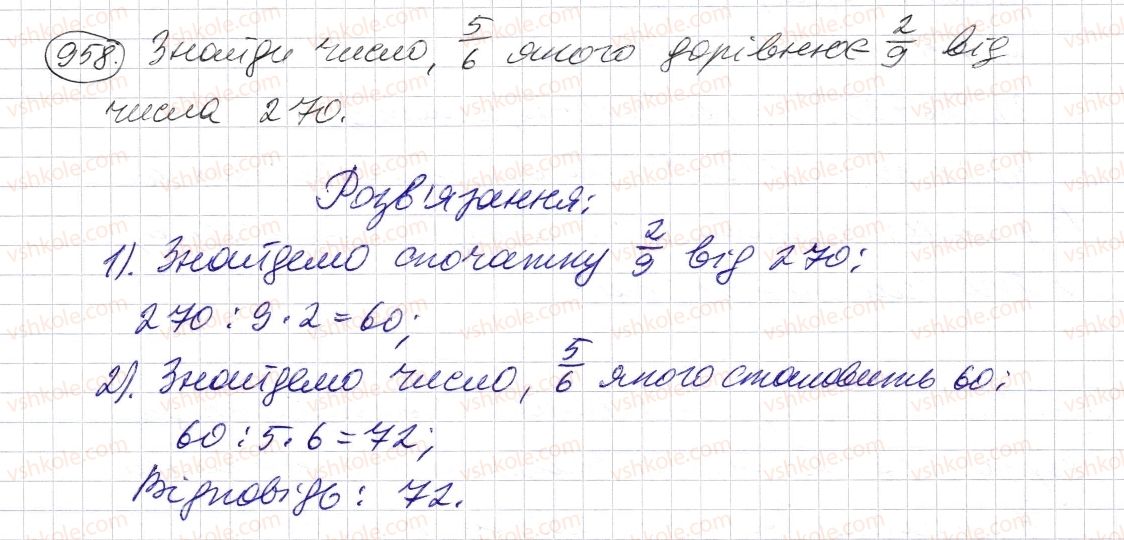 958. Знайди число, 5/6 якого дорівнює 2/9 від
числа 270.
Розв'язання:
1). Знайдемо спочатку 2/9 від 270:
270 : 9 · 2 = 60;
2). Знайдемо число, 5/6 якого становить 60:
60 : 5 · 6 = 72;
Відповідь: 72.